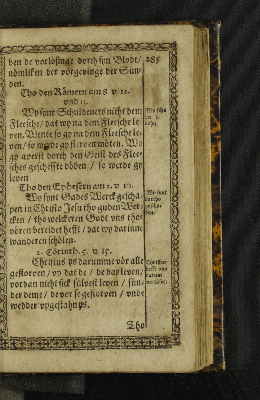 den de vorlösinge dorch syn Blodt/
nömliken der vorgevinge der Sün-
den.
285
Tho den Römern am 8. v. 12.
vnd 13.
Wy synt Schuldeners nicht dem
Fleesche/ dat wy na dem Fleesche le-
ven. Wente so gy na dem Fleesche le-
ven/ so werde gy sterven möten. Wo
gy averst dorch den Geist des Flee-
sches gescheffte döden/ so werde gy
leven
Tho den Ephesern am 2. v. 10.
Wy synt Gades Werck gescha-
pen in Christo Jesu tho guden Wer-
cken/ tho welckeren Godt vns tho-
vören bereidet hefft/ dat wy darinne
wanderen schölen.
Wy synt
2. Corinth. 5. v. 15.
Christus ys darumme vör alle
gestorven/ vp dat de/ de dar leven/
vordan nicht sick sülvest leven/ sün-
der deme/ de vor se gestorven/ vnde
wedder vpgestahn ys.
Christus
Tho